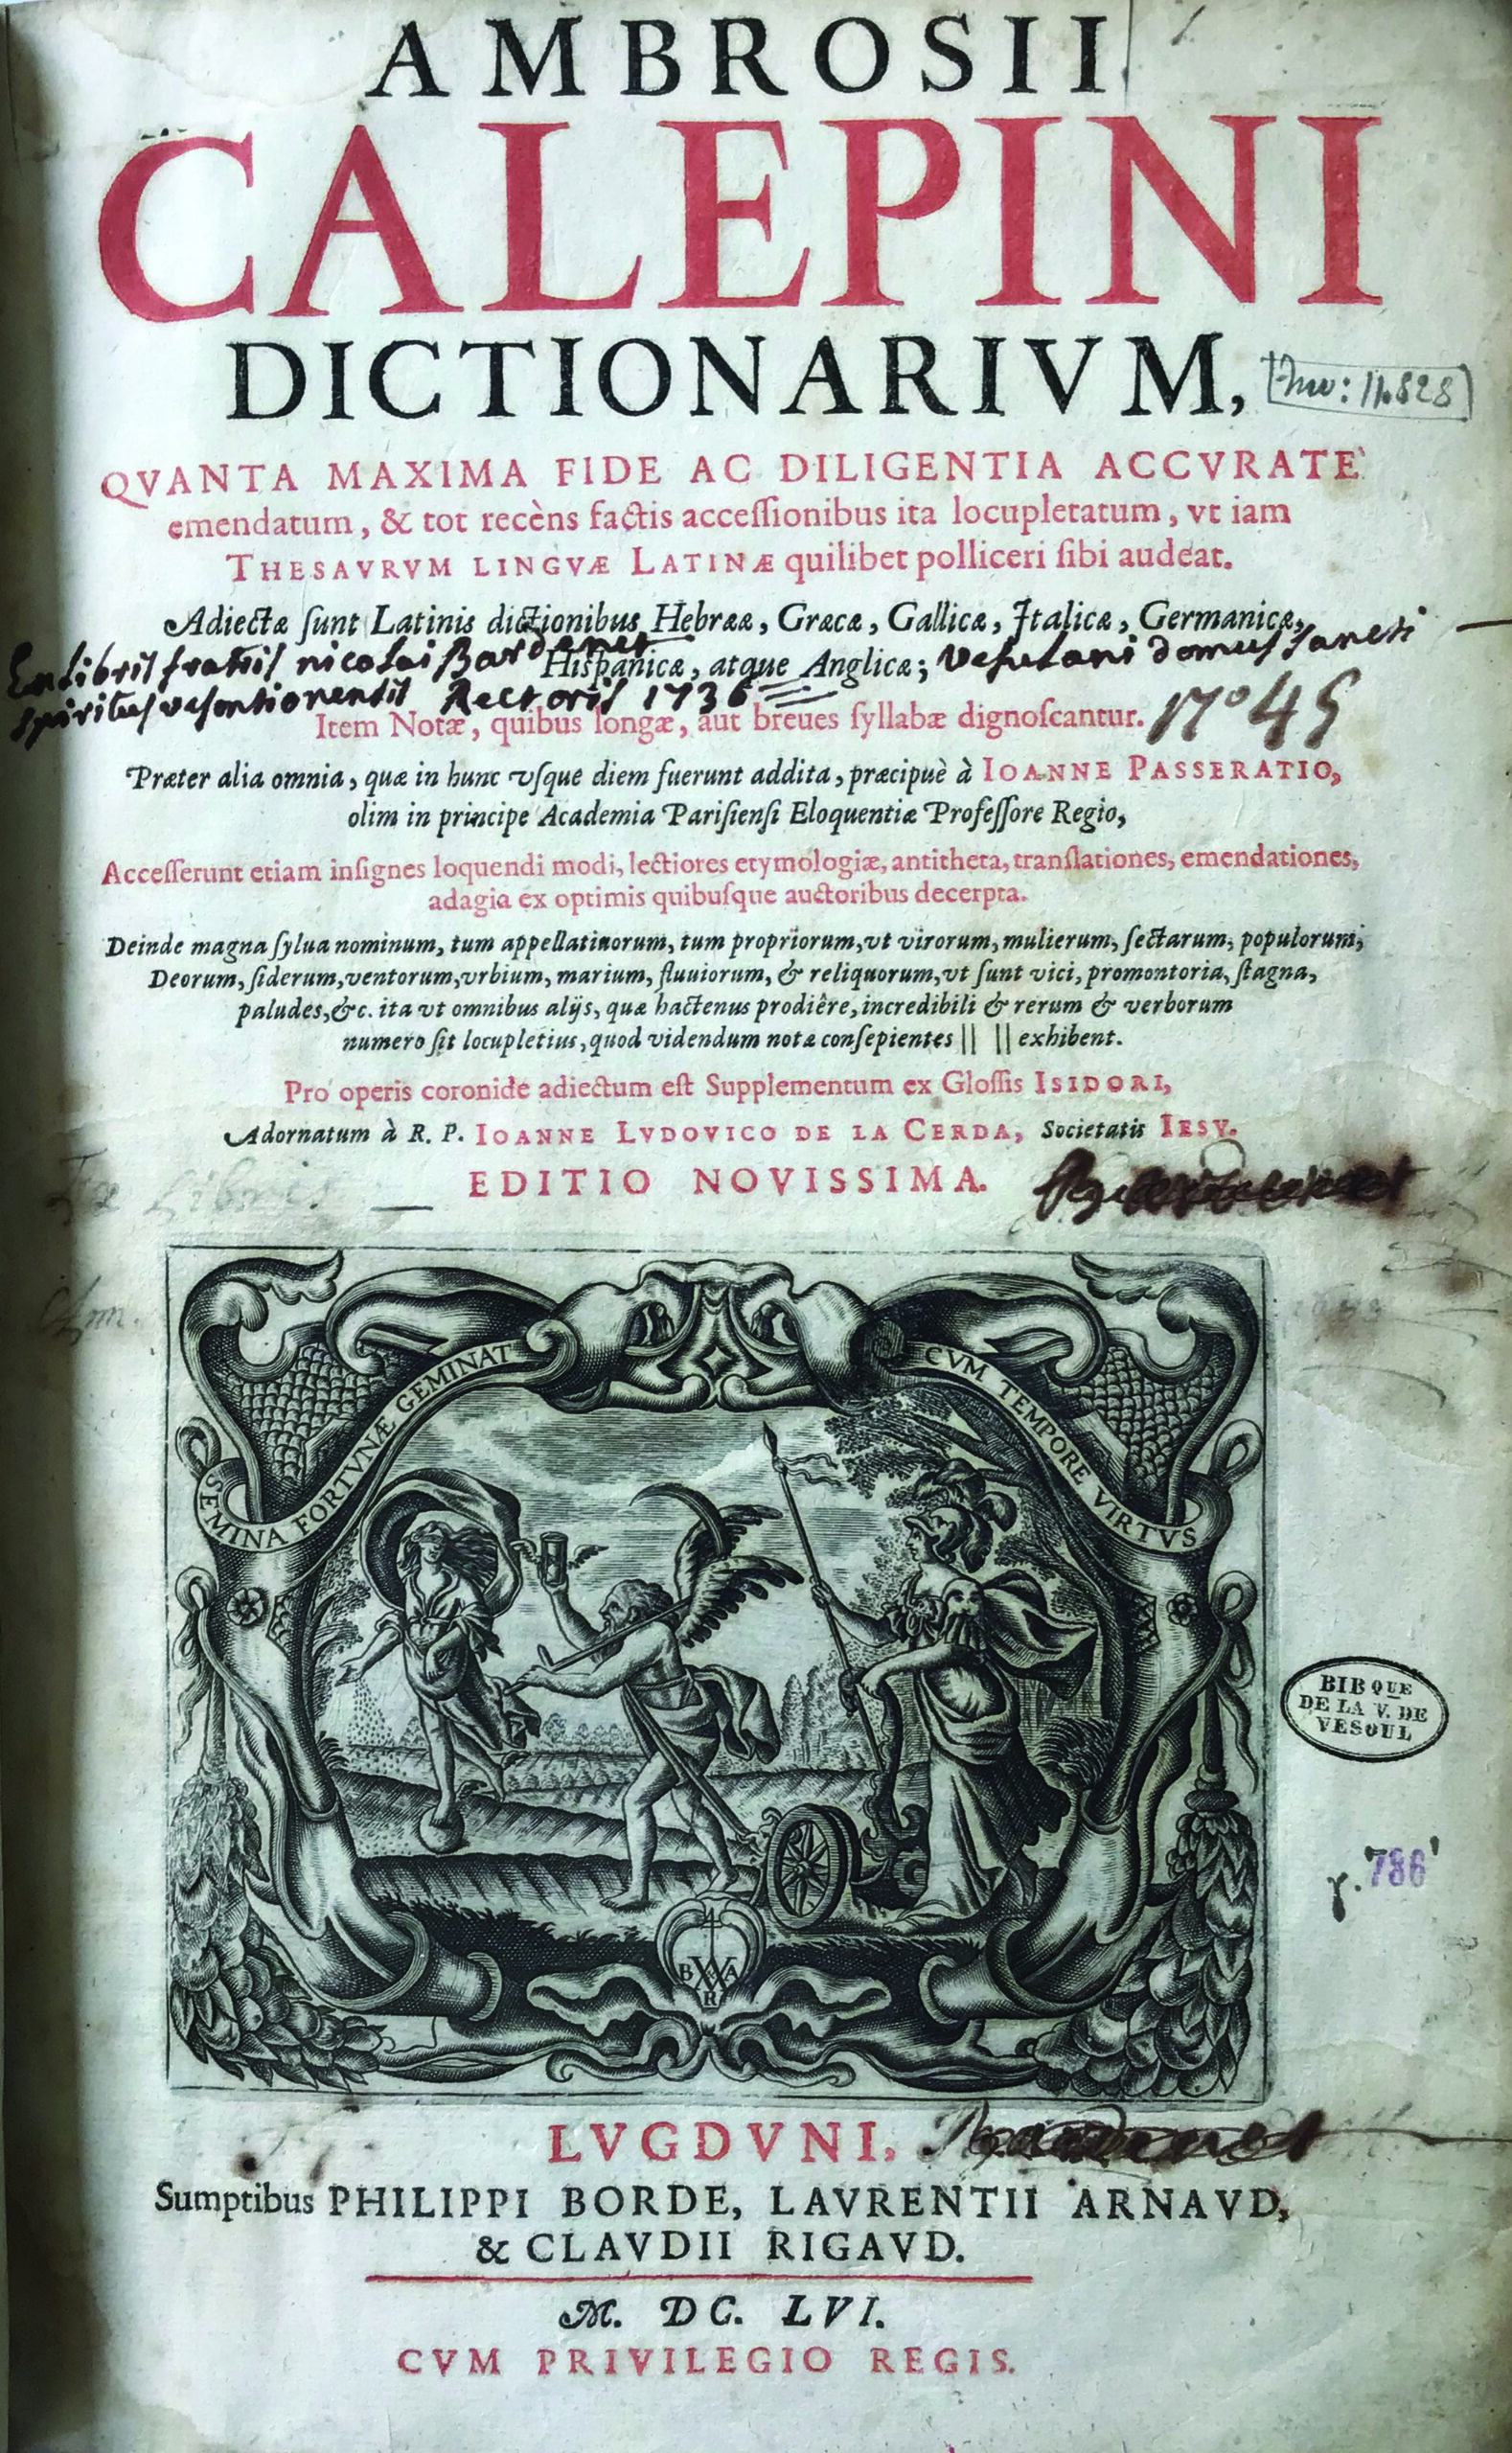 AMBROSII
CALEPINI
DICTIONARIVM,
Inv: 11.828
QVANTA MAXIMA FIDE AC DILIGENTIA ACCVRATE`
emendatum, & tot recèns factis accessionibus ita locupletatum, vt iam
THESAVRVM LINGVÆ LATINÆ quilibet polliceri sibi audeat.
Adiectæ sunt Latinis dictionibus Hebrææ, Græcæ, Gallicæ, Italicæ, Germanicæ,
Hispanicæ, atque Anglicæ;
Ex libris fratris nicolai Vesulani domus sancti
spiritus vesontionensis Rectoris 1736
Item Notæ, quibus longæ, aut breues syllabæ dignoscantur.
n° 45
Præter alia omnia, quæ in hunc vsque diem fuerunt addita, præcipuè à IOANNE PASSERATIO,
olim in principe Academia Parisiensi Eloquentiæ Professore Regio,
Accesserunt etiam insignes loquendi modi, lectiores etymologiæ, antitheta, translationes, emendationes,
adagia ex optimis quibusque auctoribus decerpta.
Deinde magna sylua nominum, tum appellatiuorum, tum propriorum, vt virorum, mulierum, sectarum, populorum,
Deorum, siderum, ventorum, vrbium, marium, fluuiorum, & reliquorum, vt sunt vici, promontoria, stagna,
paludes, &c. ita vt omnibus alijs, quæ hactenus prodiêre, incredibili & rerum & verborum
numero sit locupletius, quod videndum notæ consepientes || || exhibent.
Pro operis coronide adiectum est Supplementum ex Glossis ISIDORI,
Adornatum à R. P. IOANNE LVDOVICO DE LA CERDA, Societatis IESV.
EDITIO NOVISSIMA.
Ex Libris
SEMINA FORTVNÆ GEMINAT
CVM TEMPORE VIRTVS
B A
R
BIBQUE
DE LA V. DE
VESOUL
786
LVGDVNI,
Sumptibus PHILIPPI BORDE, LAVRENTII ARNAVD,
& CLAVDII RIGAVD.
M. DC. LVI.
CVM PRIVILEGIO REGIS.